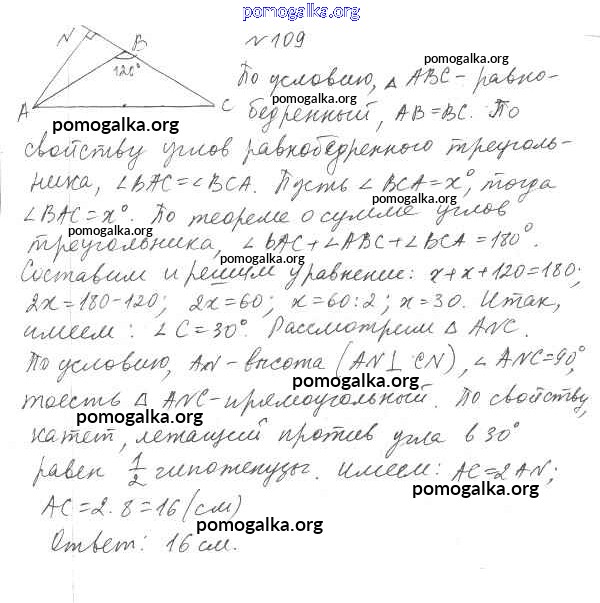 pomogalka.org
N
B
120°
A
C
№ 109
pomogalka.org
По условию, △ ABC - равно-
pomogalka.org
бедренный, AB = BC. По
pomogalka.org
свойству углов равнобедренного треуголь-
ника, ∠BAC = ∠BCA. Пусть ∠BCA = x°, тогда
pomogalka.org
∠BAC = x°. По теореме о сумме углов
pomogalka.org
треугольника, ∠BAC + ∠ABC + ∠BCA = 180°.
Составим и решим уравнение: x + x + 120 = 180;
2x = 180 - 120; 2x = 60; x = 60 : 2; x = 30. Итак,
имеем: ∠C = 30°. Рассмотрим △ ANC.
По условию, AN - высота (AN ⊥ CN), ∠ANC = 90°,
pomogalka.org
тоесть △ ANC - прямоугольный. По свойству,
pomogalka.org
катет, лежащий против угла в 30°
равен 1/2 гипотенузы. Имеем: AC = 2AN;
pomogalka.org
AC = 2 · 8 = 16 (см)
pomogalka.org
Ответ: 16 см.